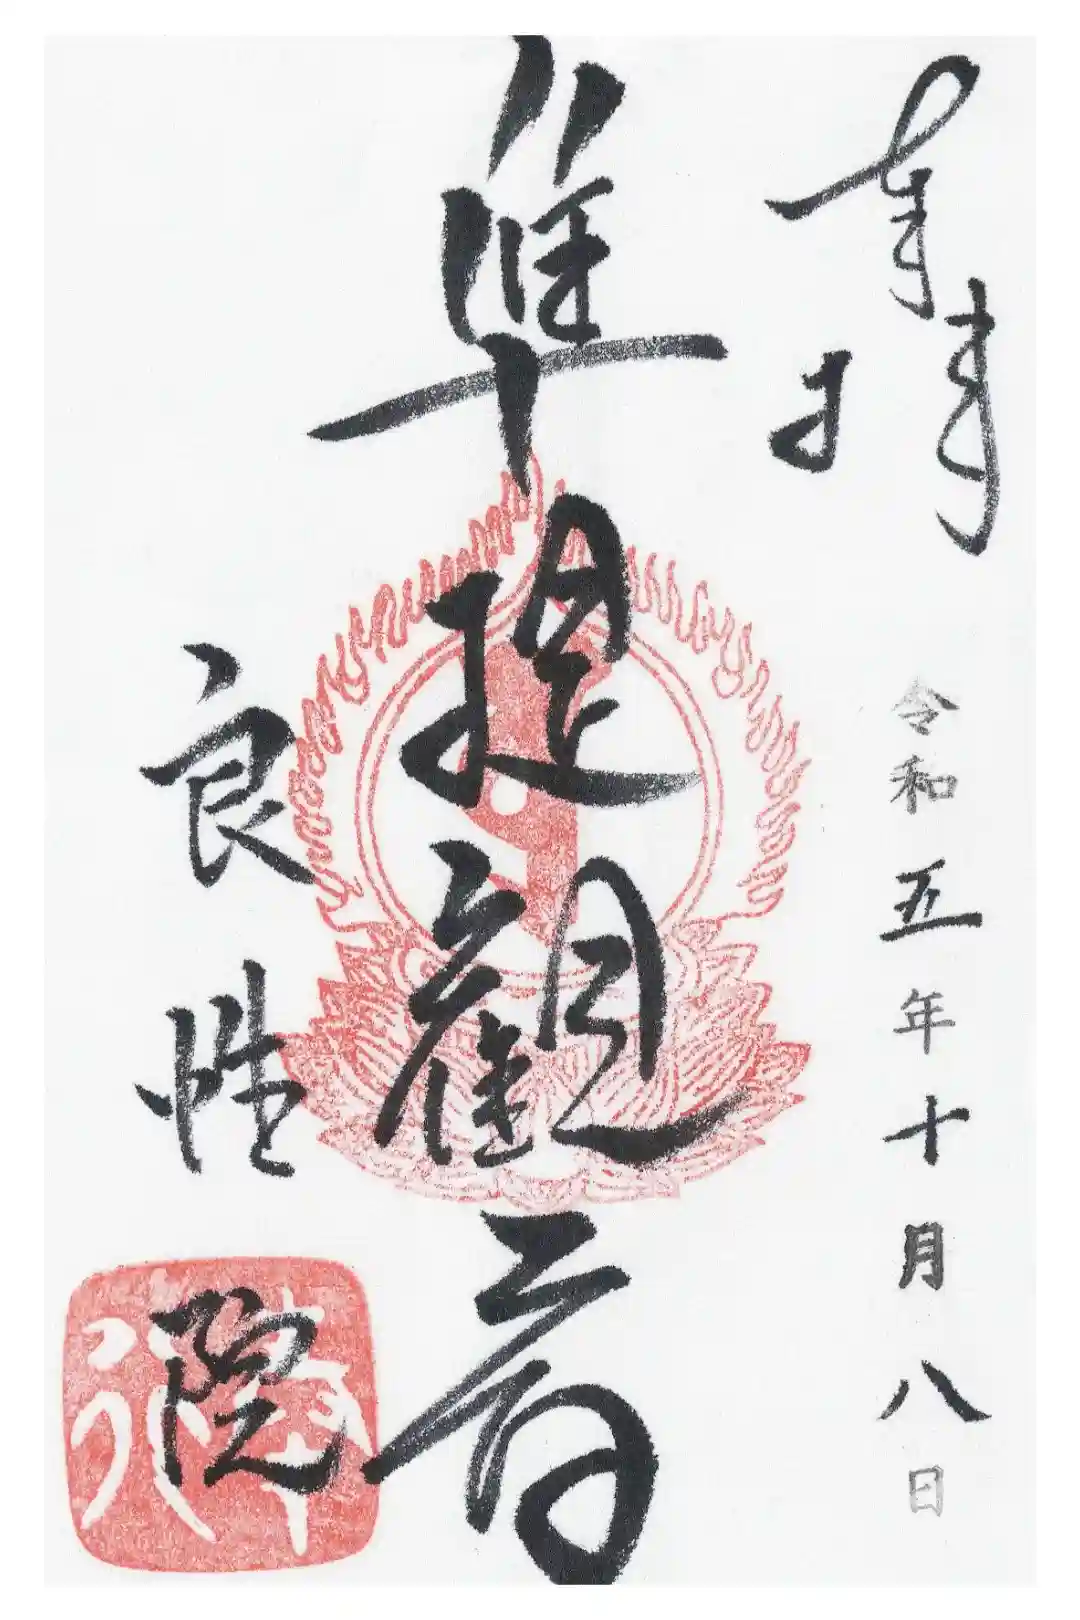 奉拝
令和五年十月八日
準提観音
良性院